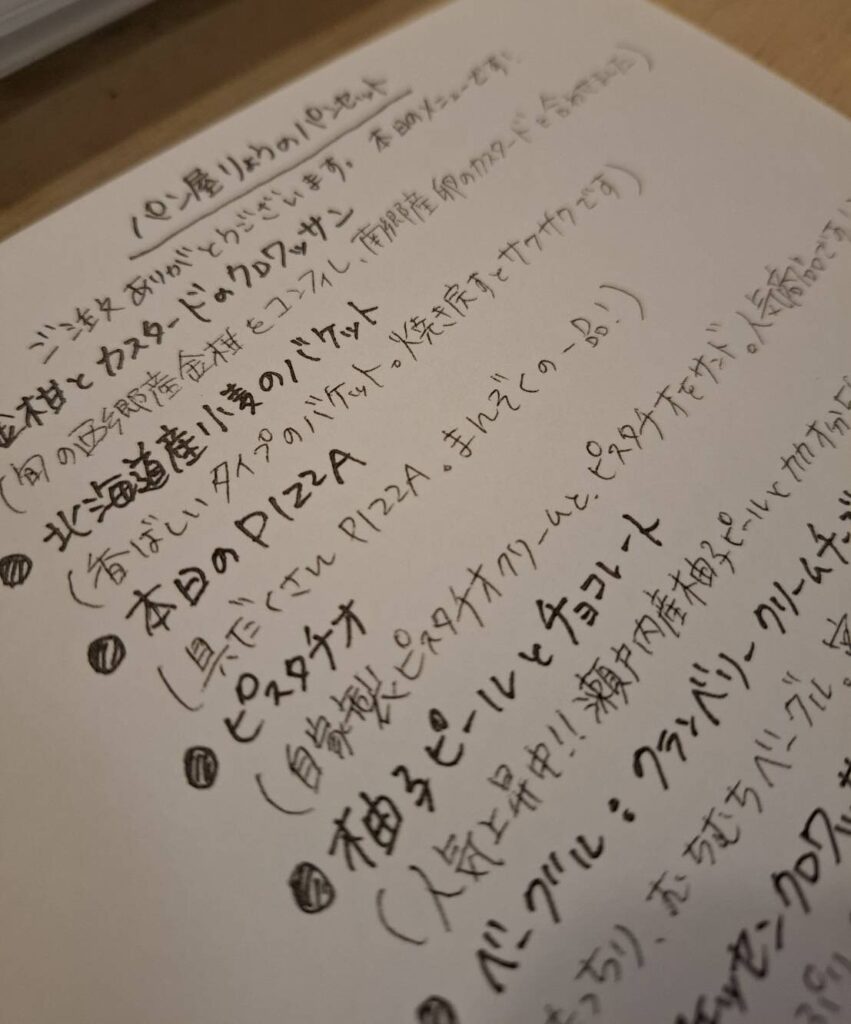 パン屋りょうのパンセット
ご注文ありがとうございます。本日のメニューです!
金柑とカスタードのクロワッサン
(旬の西郷産金柑をコンフィし、南郷産卵のカスタードと合わせました)
北海道産小麦のバケット
(香ばしいタイプのバケット。焼き戻すとサクサクです)
本日のPIZZA
(具だくさんPIZZA。まんぞくの一品!)
ピスタチオ
(自家製ピスタチオクリームと、ピスタチオをサンド。人気商品です!
柚子ピールとチョコレート
(人気上昇中!!瀬戸内産柚子ピールとカカオ分
ベーグル:クランベリークリームチーズ
むちむちベーグル。